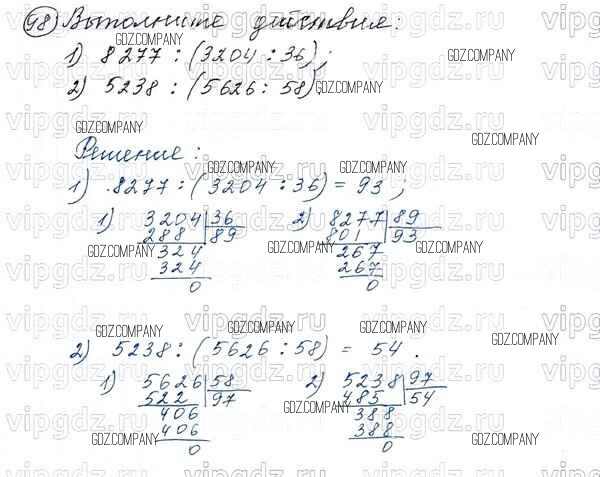 98) Выполните действия:
1) 8277 : (3204 : 36);
2) 5238 : (5626 : 58)
Решение:
1) 8277 : (3204 : 36) = 93;
1) 3204 | 36
288 | 89
324
324
0
2) 8277 | 89
801 | 93
267
267
0
2) 5238 : (5626 : 58) = 54.
1) 5626 | 58
522 | 97
406
406
0
2) 5238 | 97
485 | 54
388
388
0
GDZ.COMPANY
vipgdz.ru